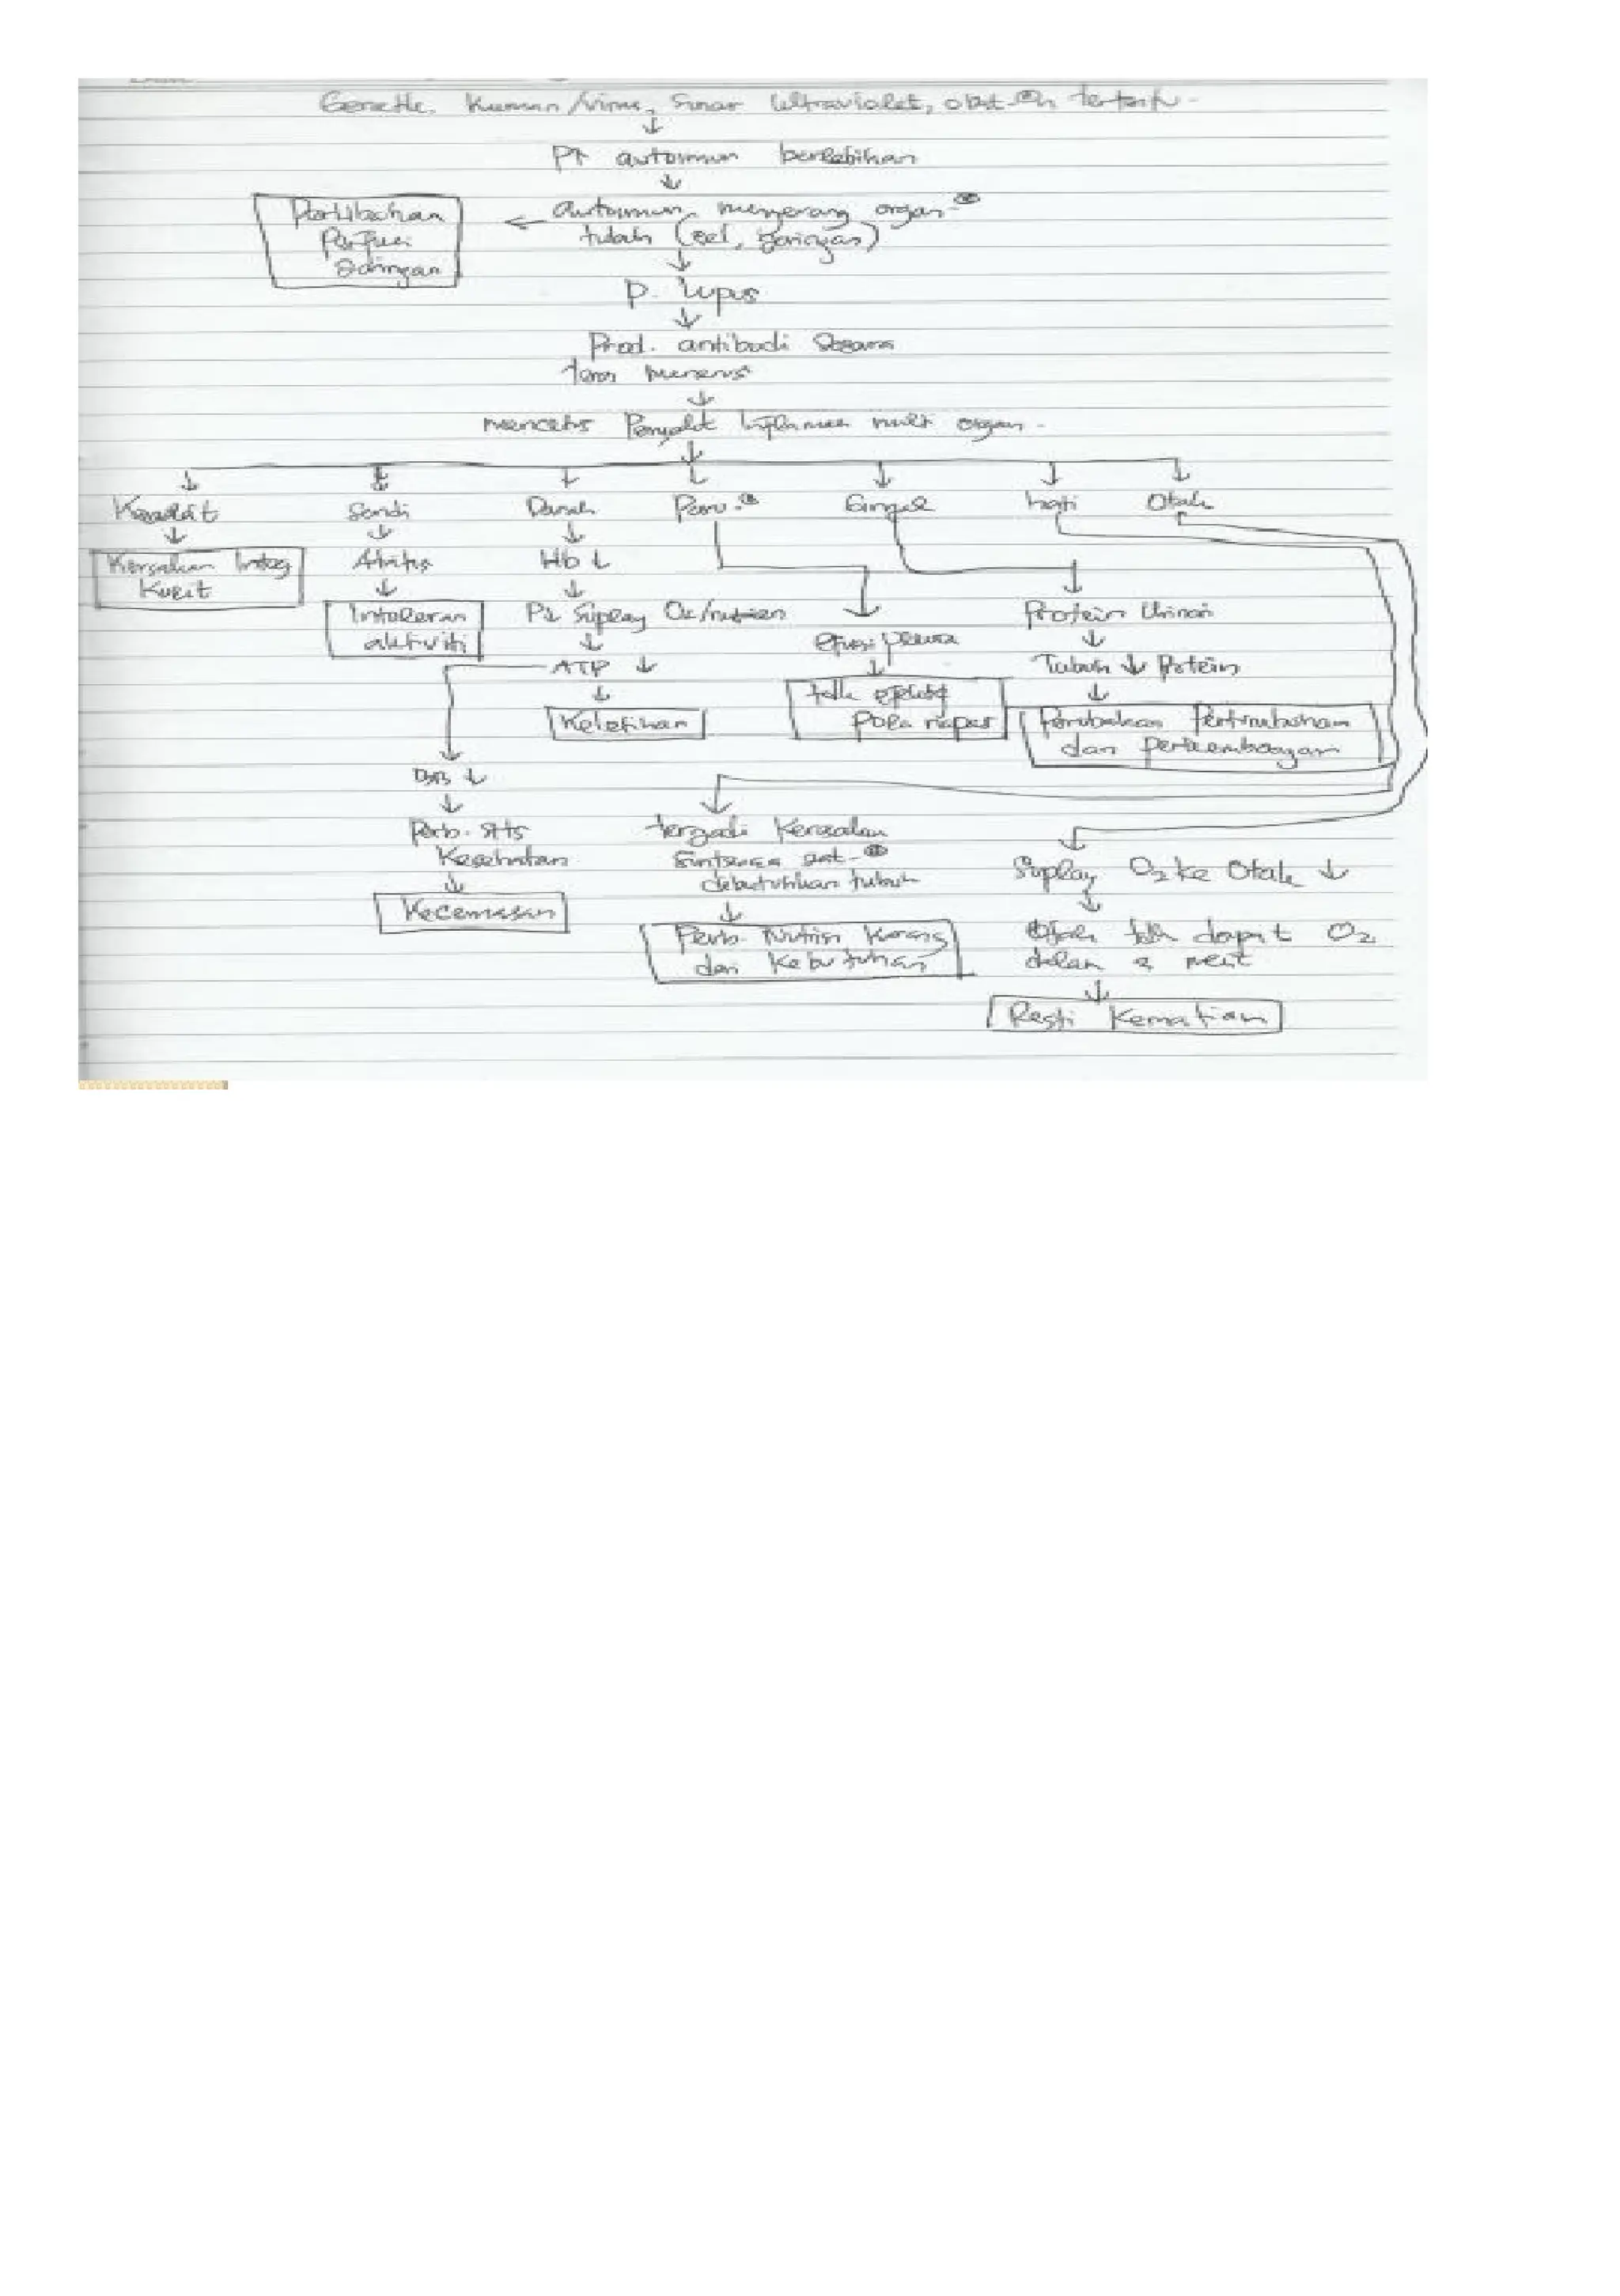 Genetik, Kuman/Virus, Sinar Ultraviolet, obat-②n tertentu -
↓
P↑ autoimun berlebihan
↓
Autoimun menyerang organ-②
tubuh (sel, jaringan)
Perubahan
Perfusi
Jaringan
↓
P. Lupus
↓
Prod. antibodi secara
terus menerus
↓
mencetus Penyakit Inflamasi multi organ -
↓ ↓ ↓ ↓ ↓ ↓ ↓
Sendi Darah Paru-② Ginjal hati Otak
↓ ↓ ↓
Kerusakan Integ
Kulit
Atritis Hb ↓
↓ ↓
Intoleran
aktiviti
P↓ Suplay O2/nutrien
Protein Urinari
↓ ↓
ATP ↓
efusi pleura
Tubuh ↓ Protein
↓ ↓ ↓
Keletihan
tdk efektif
Pola napas
Perubahan Pertumbuhan
dan perkembangan
↓
↓
Perb. sts
Kesehatan
↓
Kecemasan
terjadi Kerusakan
Sintensa zat-②
dibutuhkan tubuh
↓
Perb. Nutrisi Kurang
dari Kebutuhan
Suplay O2 ke Otak ↓
↓
tdk dapat O2
dalam 2 menit
↓
Resti Kematian